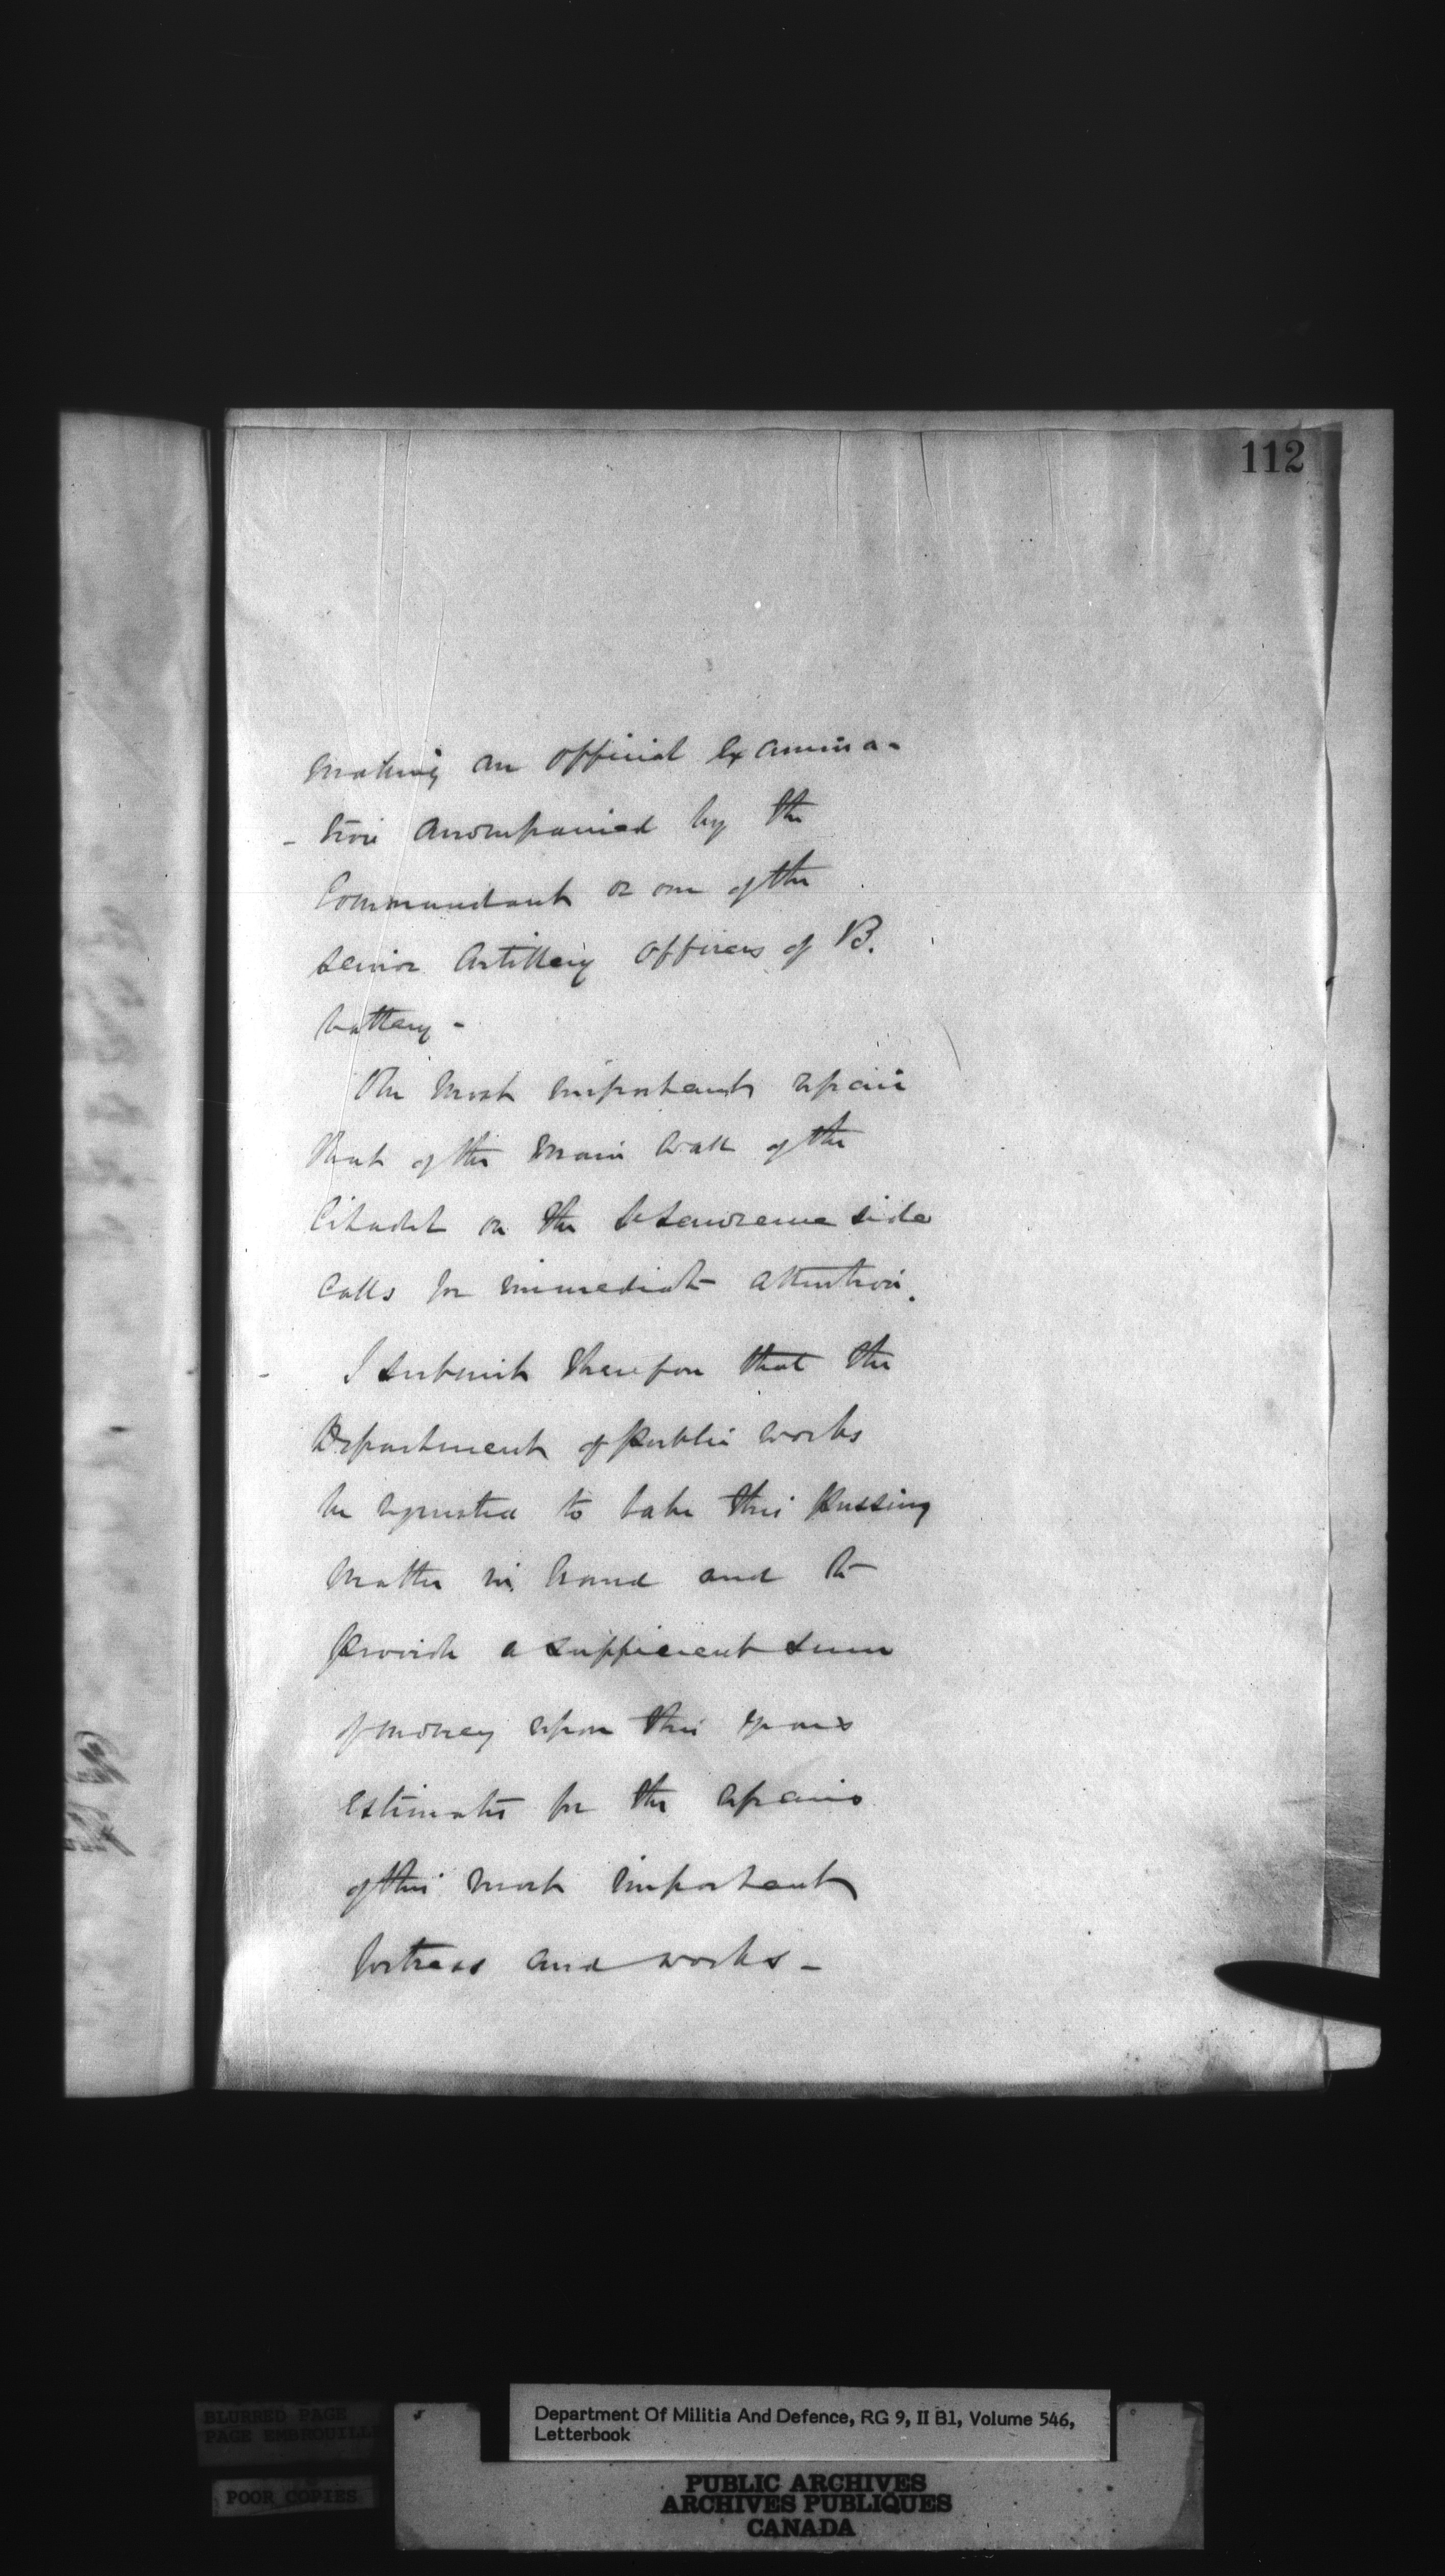 112
making an official examina-
-tion accompanied by the
Commandant or one of the
senior Artillery officers of B.
battery -
The most important repair
that of the main wall of the
Citadel on the St Lawrence side
calls for immediate attention.
I submit therefore that the
Department of Public works
be requested to take this pressing
matter in hand and to
provide a sufficient sum
of money upon this years
estimates for the repairs
of this most important
fortress and works -
Department Of Militia And Defence, RG 9, II B1, Volume 546,
Letterbook
BLURRED PAGE
PAGE EMBROUILLE
POOR COPIES
PUBLIC ARCHIVES
ARCHIVES PUBLIQUES
CANADA